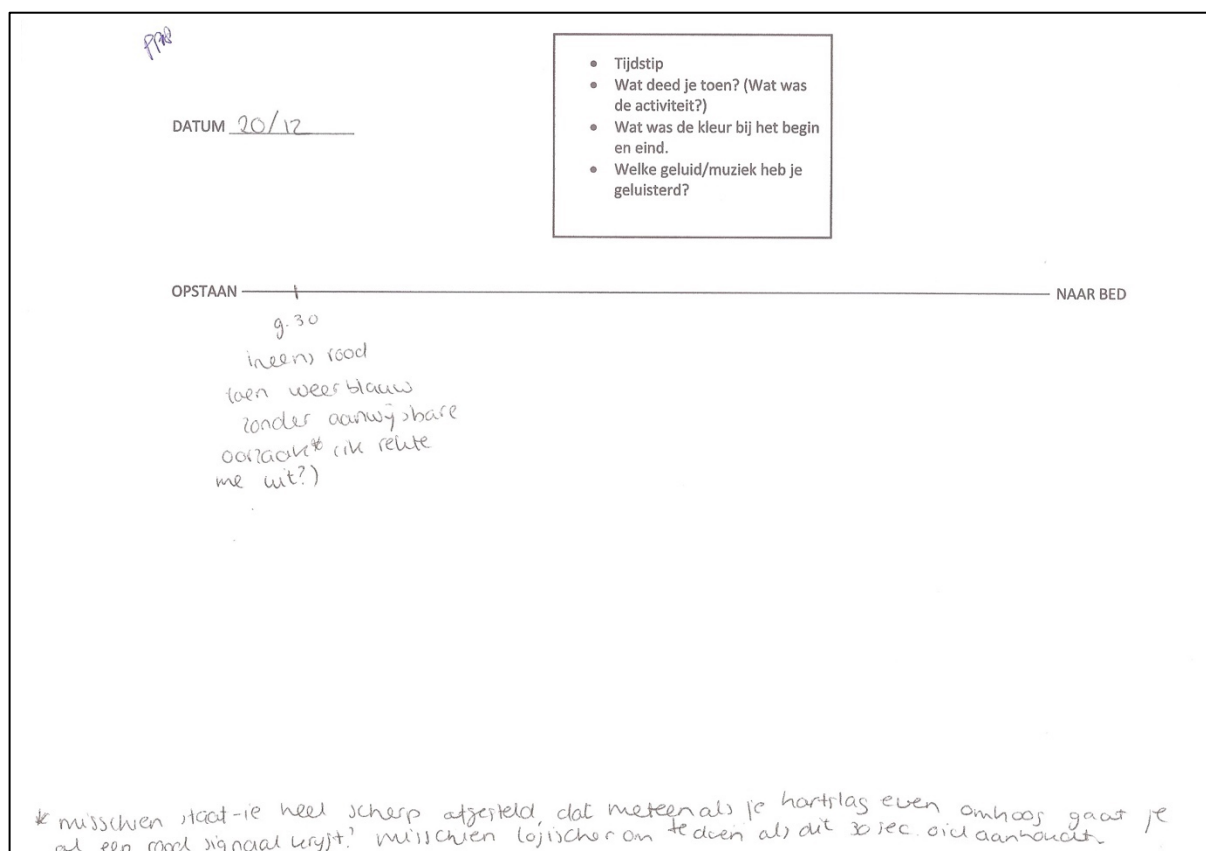 DATUM 20/12
• Tijdstip
• Wat deed je toen? (Wat was
de activiteit?)
• Wat was de kleur bij het begin
en eind.
• Welke geluid/muziek heb je
geluisterd?
OPSTAAN NAAR BED
9.30
ineens rood
toen weer blauw
zonder aanwijsbare
oorzaak* (ik rekte
me uit?)
* misschien staat-ie heel scherp afgesteld, dat meteen als je hartslag even omhoog gaat je
al een rood signaal krijgt? misschien logischer om te doen als dit 30 sec. aanhoudt.